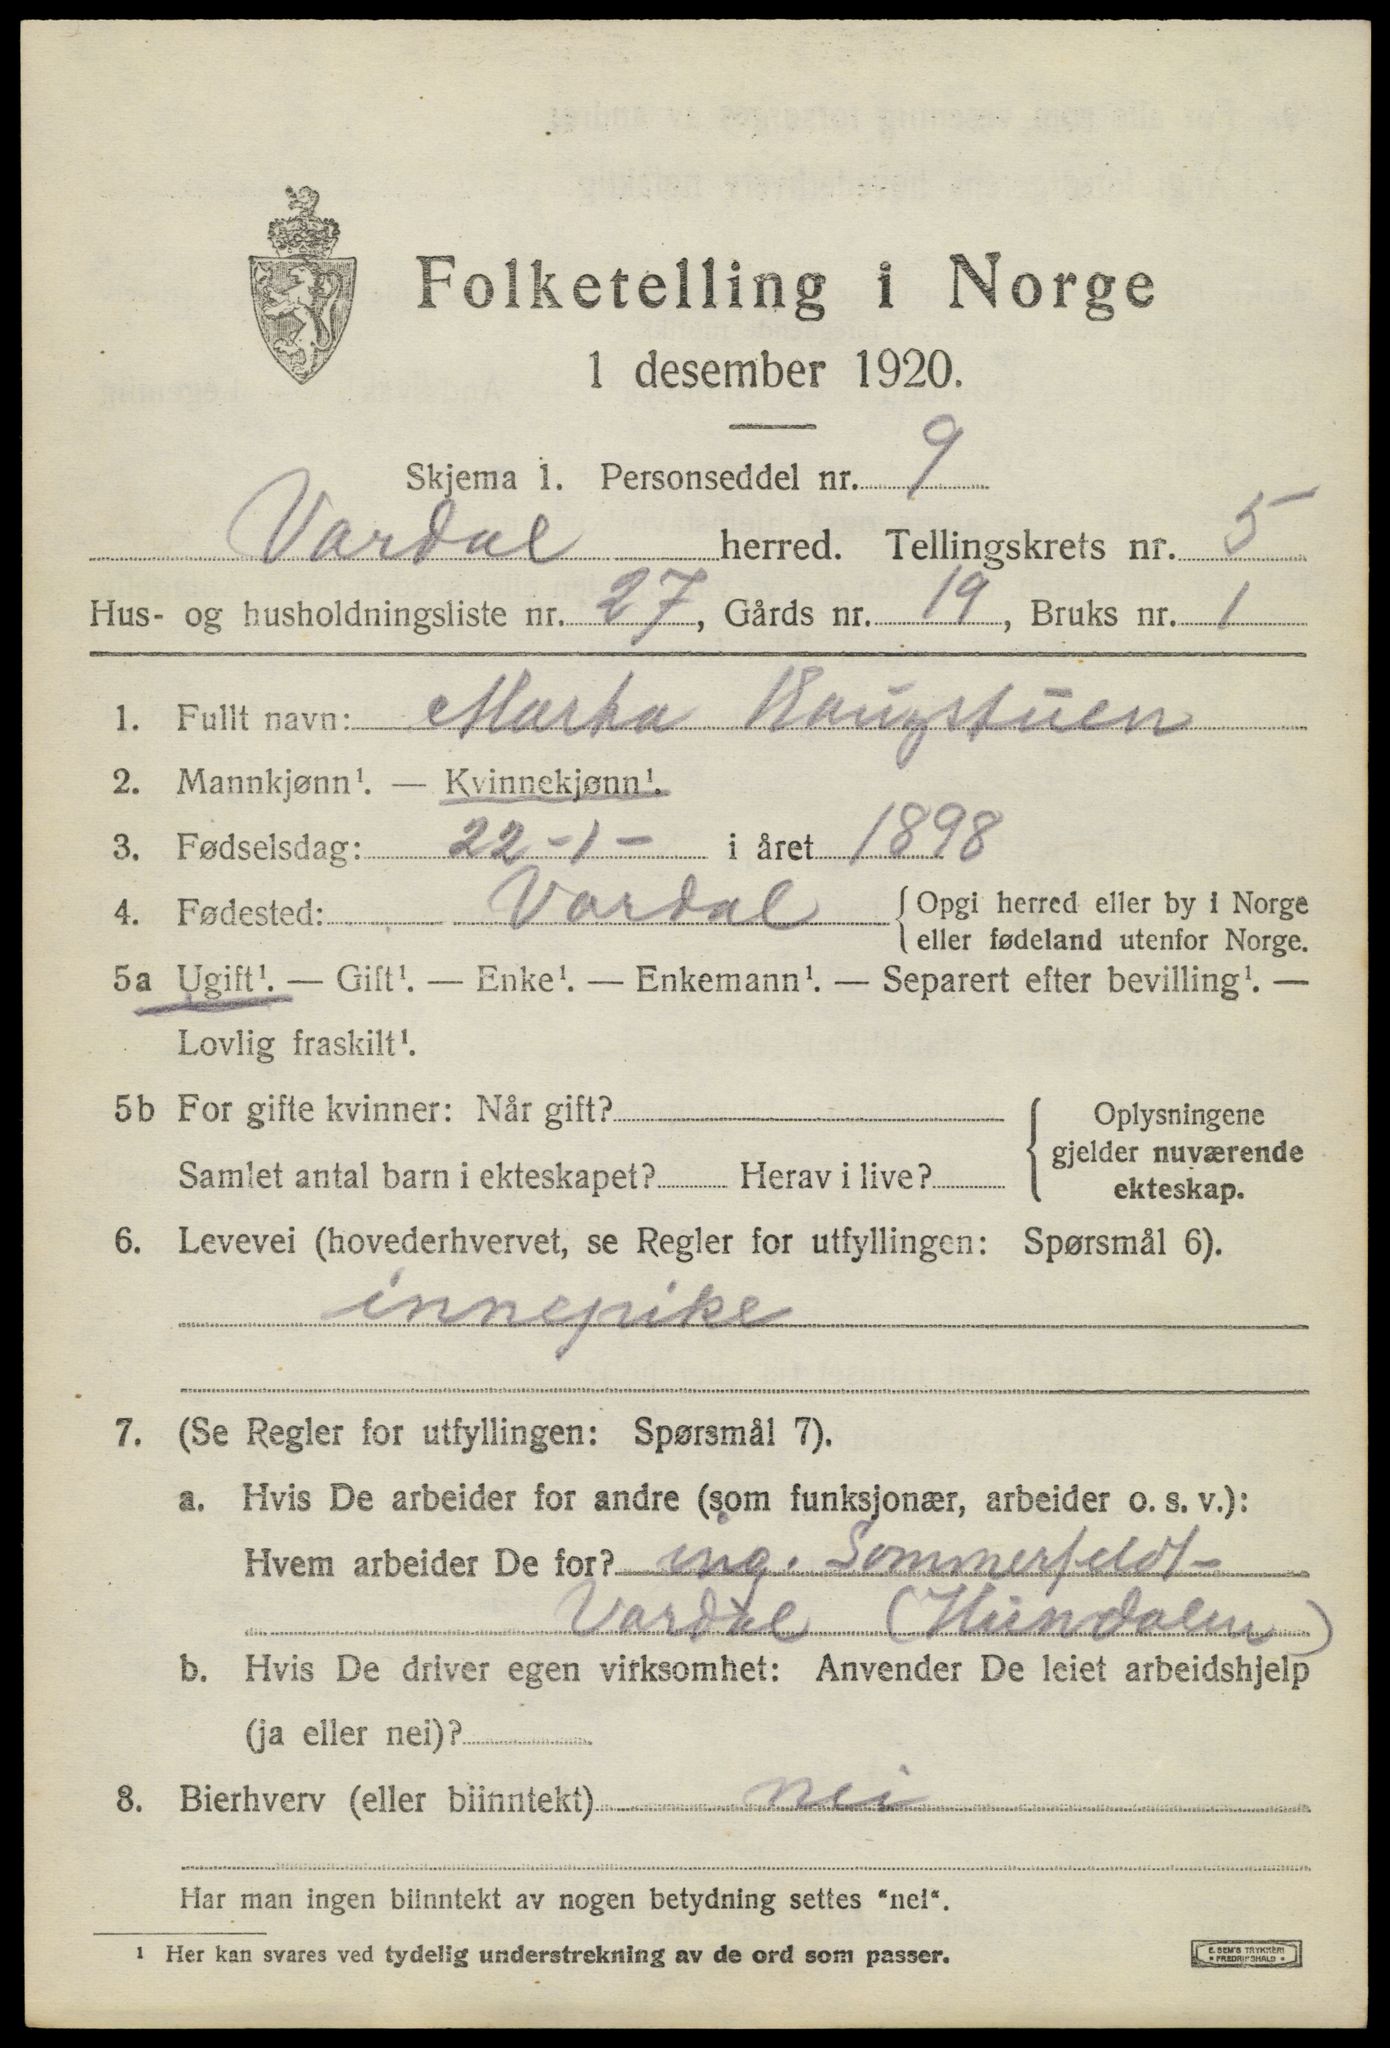 Folketelling i Norge
1 desember 1920.
Skjema 1. Personseddel nr. 9
Vardal herred. Tellingskrets nr. 5
Hus- og husholdningsliste nr. 27, Gårds nr. 19, Bruks nr. 1
1. Fullt navn: Marta Haugstuen
2. Mannkjønn¹. — Kvinnekjønn¹.
3. Fødselsdag: 22-1- i året 1898
4. Fødested: Vardal { Opgi herred eller by i Norge
eller fødeland utenfor Norge.
5a Ugift¹. — Gift¹. — Enke¹. — Enkemann¹. — Separert efter bevilling¹. —
Lovlig fraskilt¹.
5b For gifte kvinner: Når gift?
Samlet antal barn i ekteskapet? Herav i live?
Oplysningene
gjelder nuværende
ekteskap.
6. Levevei (hovederhvervet, se Regler for utfyllingen: Spørsmål 6).
innepike
7. (Se Regler for utfyllingen: Spørsmål 7).
a. Hvis De arbeider for andre (som funksjonær, arbeider o. s. v.):
Hvem arbeider De for? ing. Sommerfeldt-
Vardal (Hundalen)
b. Hvis De driver egen virksomhet: Anvender De leiet arbeidshjelp
(ja eller nei)?
8. Bierhverv (eller biinntekt) nei
Har man ingen biinntekt av nogen betydning settes "nei".
¹ Her kan svares ved tydelig understrekning av de ord som passer.
E. SEM'S TRYKKERI
• FREDRIKSHALD •